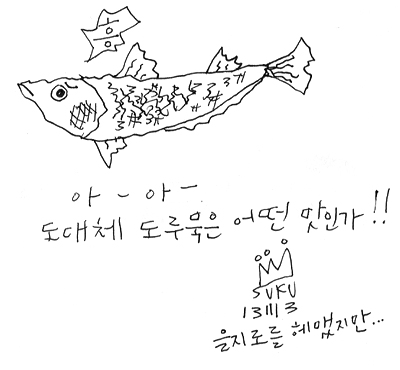 흠
아-아-
도대체 도루묵은 어떤 맛인가!!
SUKU
131113
을지로를 헤맸지만...